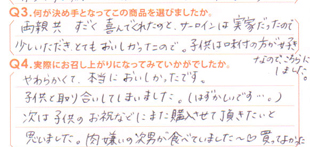 Q3.何が決め手となってこの商品を選びましたか。
両親共 すごく喜んでくれたのと、サーロインは実家だったので
少しいただき、とてもおいしかったので。子供は切付の方がが好き
なので、こちらに
しました。
Q4.実際にお召し上がりになってみていかがでしたか。
やわらかくて、本当においしかったです。
子供と取り合いしてしまいました。(はずかしいです…。)
次は子供のお祝などにまた購入させて頂きたいと
思いました。肉嫌いの次男が食べていました〜♡買ってよかった